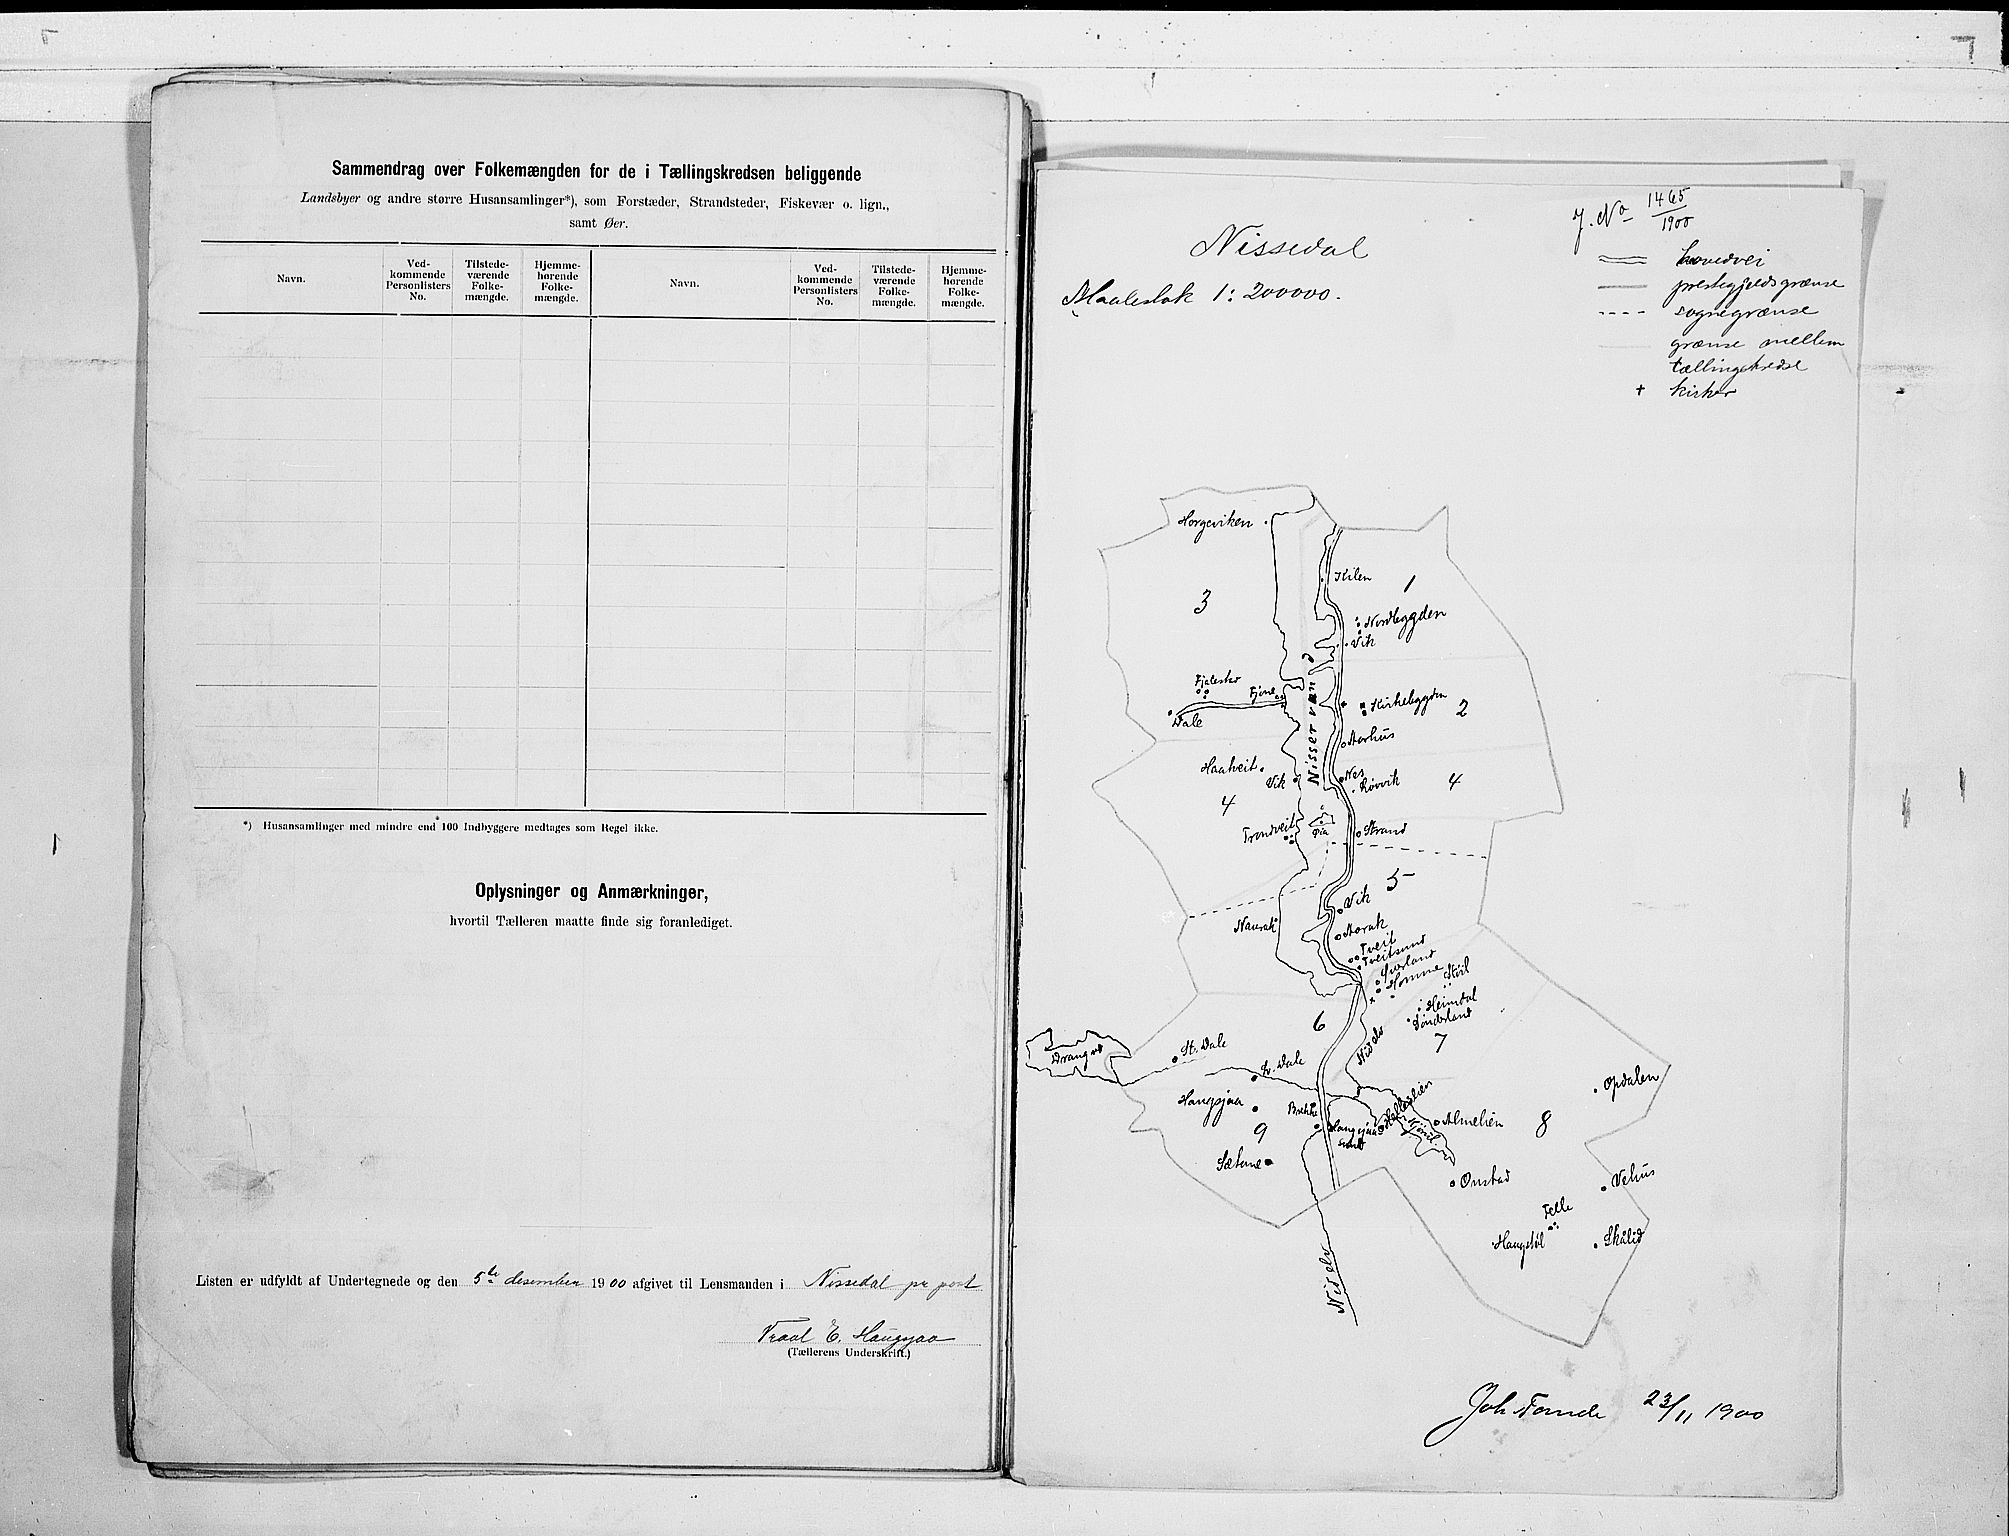 Sammendrag over Folkemængden for de i Tællingskredsen beliggende
Landsbyer og andre større Husansamlinger*), som Forstæder, Strandsteder, Fiskevær o. lign.,
samt Øer.
Navn.
Ved-
kommende
Personlisters
No.
Tilstede-
værende
Folke-
mængde.
Hjemme-
hørende
Folke-
mængde.
Navn.
Ved-
kommende
Personlisters
No.
Tilstede-
værende
Folke-
mængde.
Hjemme-
hørende
Folke-
mængde.
*) Husansamlinger med mindre end 100 Indbyggere medtages som Regel ikke.
Oplysninger og Anmærkninger,
hvortil Tælleren maatte finde sig foranlediget.
Listen er udfyldt af Undertegnede og den 5te desember 1900 afgivet til Lensmanden i Nissedal pr post
Traal E. Haugsjaa
(Tællerens Underskrift.)
J. No 1465
1900
Nissedal
Maalestok 1:200000.
hovedvei
prestegjeldsgrænse
sognegrænse
grænse mellem
tællingskredse
+ kirker
Horgeviken
Kilen
1
3
Nordbygden
Vik
Fjalestad
Fjone
Dale
Nisser vand
Kirkebygden
2
Storhus
Haatveit
Vik
Nes
Røvvik
4
4
Trondveit
Øia
Strand
5
Vik
Naurak
Storak
Tveit
Tveitsund
Homme
Støil
Heimdal
Sønderland
6
7
Nidelv
Drangvd
St. Dale
L. Dale
Opdalen
Haugsjaa
Brekke
Haugsjaa
sund
Almelien
8
9
Sæterne
Onstad
Vehus
Felle
Haugstøl
Skålid
Nidelv
Joh Tomde 23/11 1900